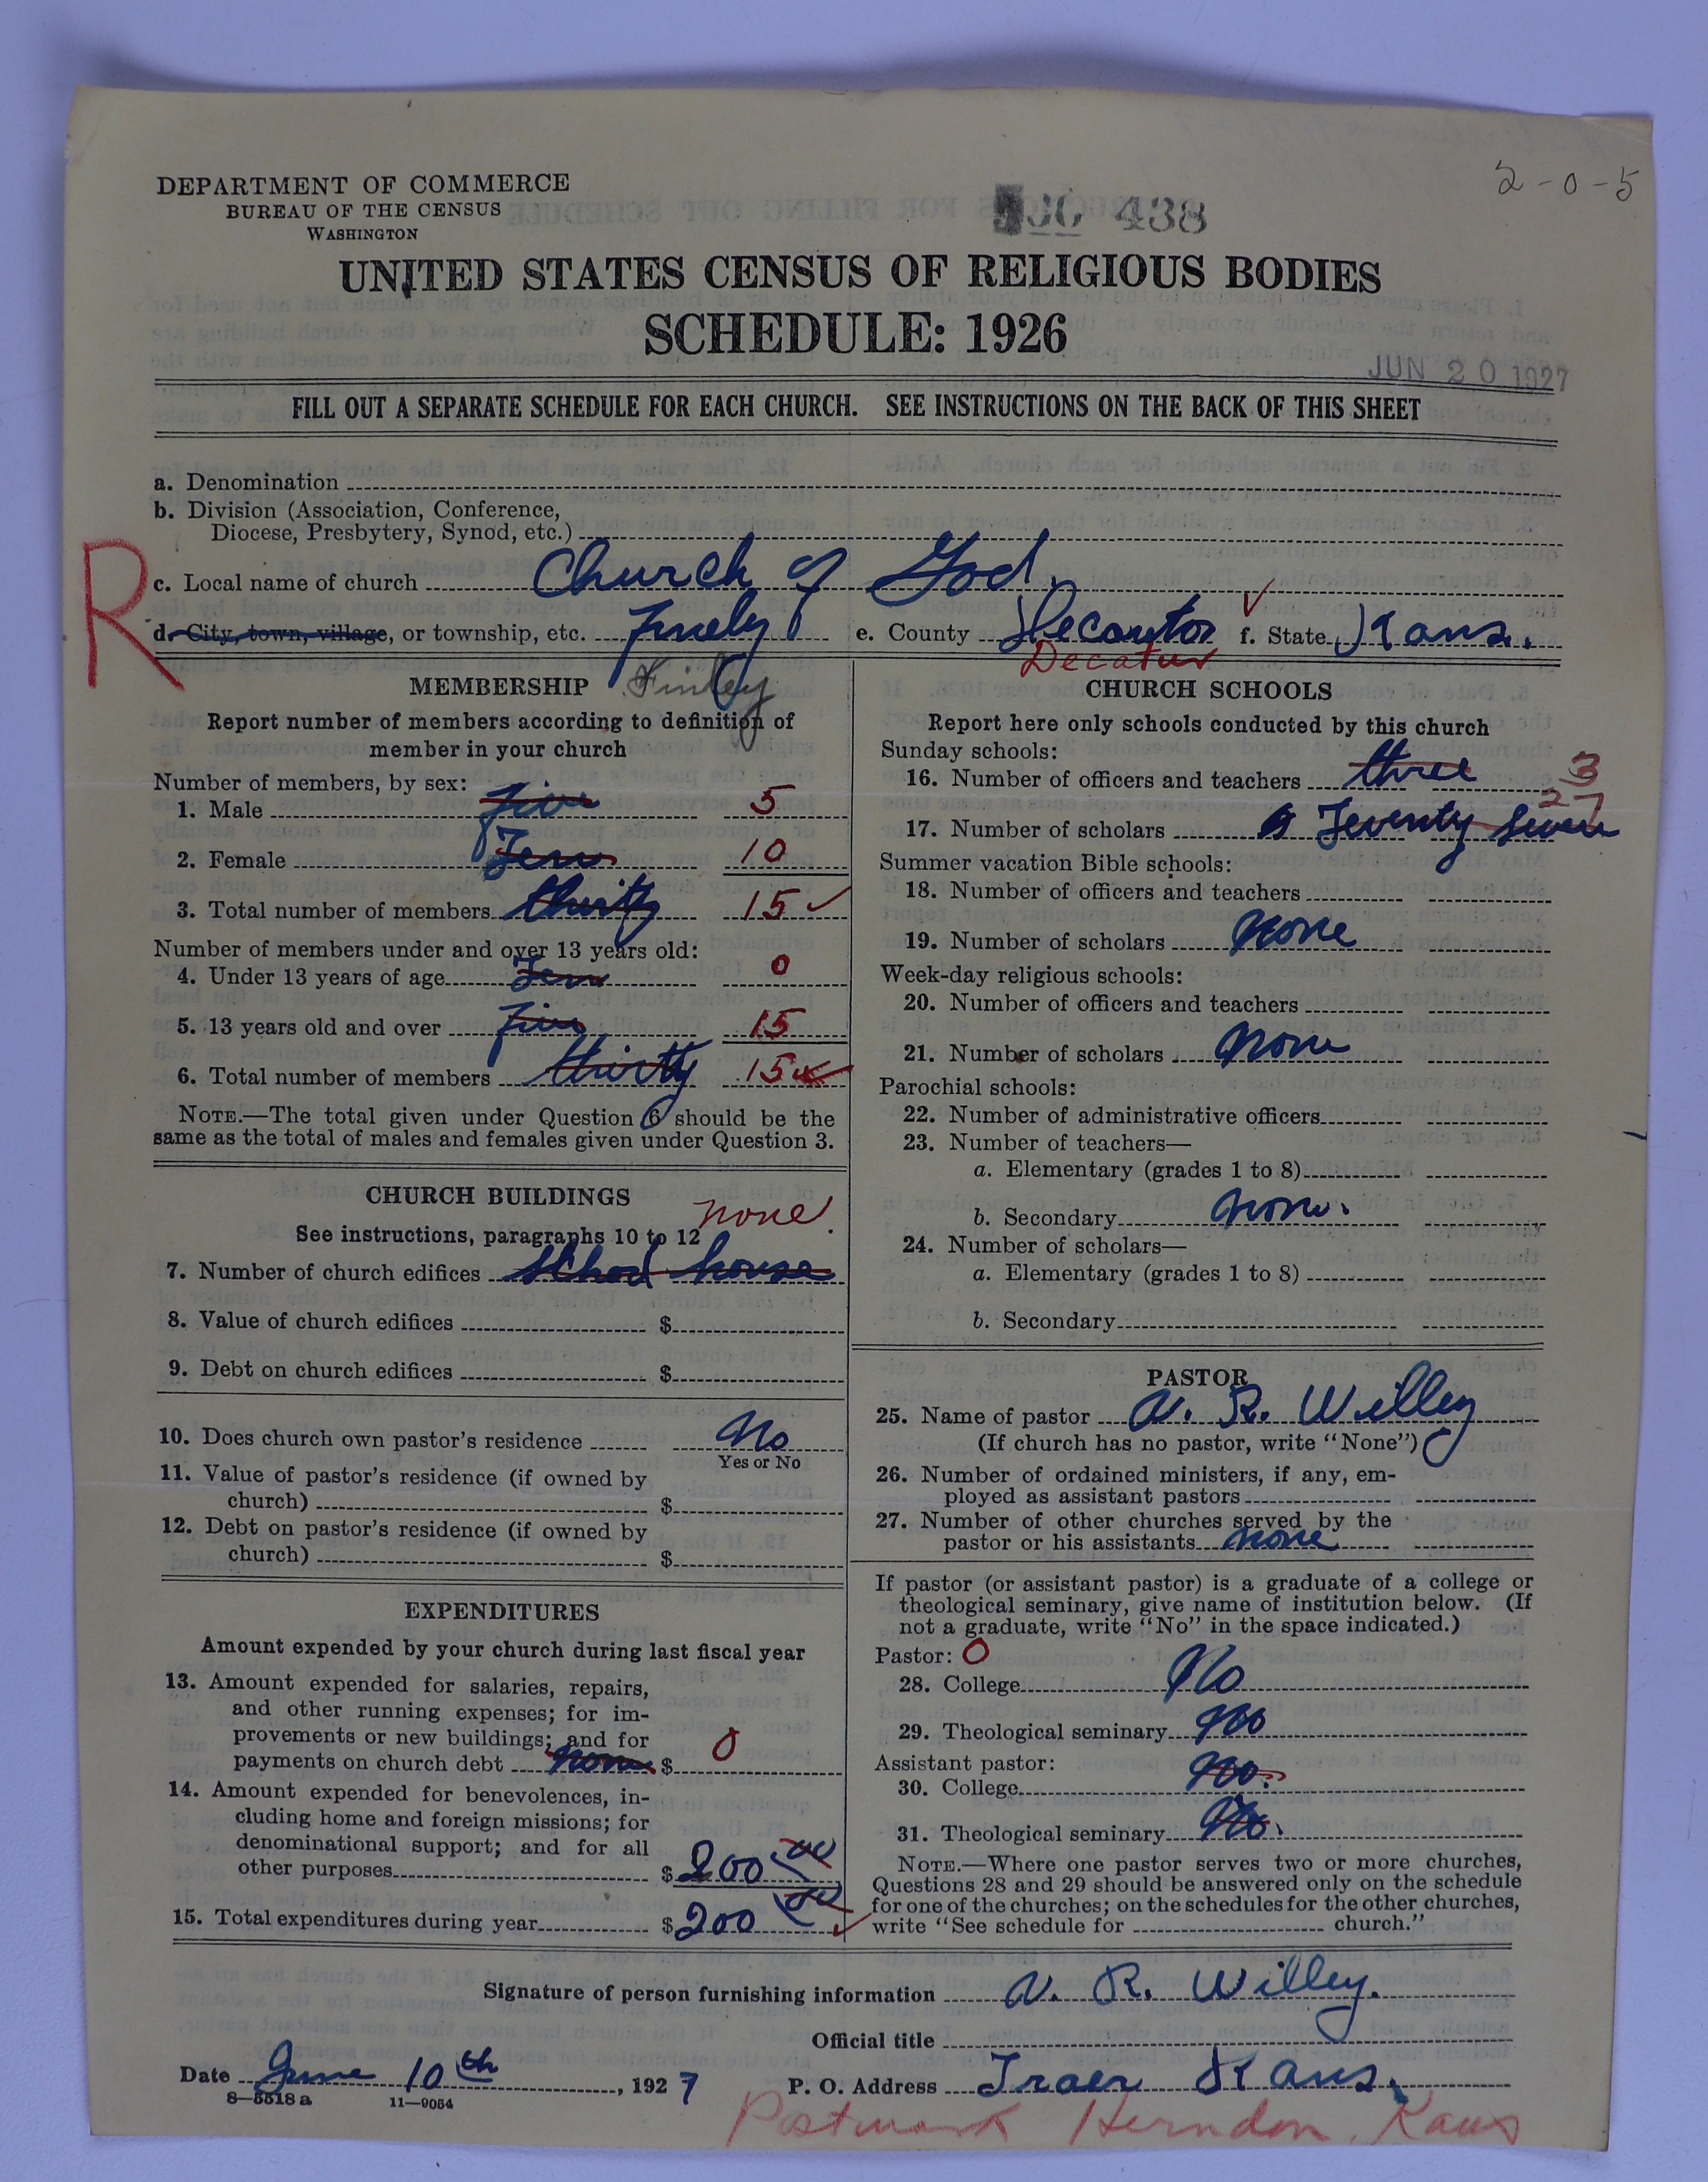 2-0-5
DEPARTMENT OF COMMERCE
BUREAU OF THE CENSUS
WASHINGTON
438
UNITED STATES CENSUS OF RELIGIOUS BODIES
SCHEDULE: 1926
JUN 20 1927
FILL OUT A SEPARATE SCHEDULE FOR EACH CHURCH. SEE INSTRUCTIONS ON THE BACK OF THIS SHEET
a. Denomination
b. Division (Association, Conference,
Diocese, Presbytery, Synod, etc.)
R
c. Local name of church Church of God.
d. City, town, village, or township, etc. Finely e. County Decantor f. State Kans.
Finley Decatur
MEMBERSHIP
Report number of members according to definition of
member in your church
Number of members, by sex:
1. Male five 5
2. Female Ten 10
3. Total number of members thirty 15 ✓
Number of members under and over 13 years old:
4. Under 13 years of age Ten 0
5. 13 years old and over five 15
6. Total number of members thirty 15
NOTE.—The total given under Question 6 should be the
same as the total of males and females given under Question 3.
CHURCH BUILDINGS
See instructions, paragraphs 10 to 12 none
7. Number of church edifices school house
8. Value of church edifices $
9. Debt on church edifices $
10. Does church own pastor's residence No
Yes or No
11. Value of pastor's residence (if owned by
church) $
12. Debt on pastor's residence (if owned by
church) $
EXPENDITURES
Amount expended by your church during last fiscal year
13. Amount expended for salaries, repairs,
and other running expenses; for im-
provements or new buildings; and for
payments on church debt none $ 0
14. Amount expended for benevolences, in-
cluding home and foreign missions; for
denominational support; and for all
other purposes $200 00
15. Total expenditures during year $200 00
CHURCH SCHOOLS
Report here only schools conducted by this church
Sunday schools:
16. Number of officers and teachers three 3
17. Number of scholars Tewenty Seven 27
Summer vacation Bible schools:
18. Number of officers and teachers
19. Number of scholars none
Week-day religious schools:
20. Number of officers and teachers
21. Number of scholars none
Parochial schools:
22. Number of administrative officers
23. Number of teachers—
a. Elementary (grades 1 to 8)
b. Secondary none.
24. Number of scholars—
a. Elementary (grades 1 to 8)
b. Secondary
PASTOR
25. Name of pastor V. R. Willey
(If church has no pastor, write "None")
26. Number of ordained ministers, if any, em-
ployed as assistant pastors
27. Number of other churches served by the
pastor or his assistants none
If pastor (or assistant pastor) is a graduate of a college or
theological seminary, give name of institution below. (If
not a graduate, write "No" in the space indicated.)
Pastor: 0
28. College No
29. Theological seminary No
Assistant pastor:
30. College No.
31. Theological seminary No.
NOTE.—Where one pastor serves two or more churches,
Questions 28 and 29 should be answered only on the schedule
for one of the churches; on the schedules for the other churches,
write "See schedule for church."
Signature of person furnishing information V. R. Willey.
Official title
Date June 10th, 1927 P. O. Address Traer Kans.
8—5518 a 11—9054
Postmark Herndon, Kans